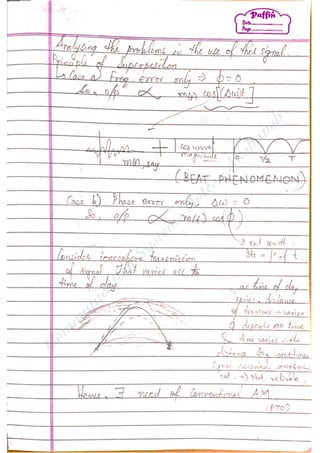 Puffin
Date
Page
Analysing the problems in the use of this signal.
Principle of Superposition
↳ Case a) Freq error only ⇒ φ=0
So, o/p ∝ m(t) cos[(Δω)t]
m(t), say + cos wave magnitude 0 T/2 T
(BEAT PHENOMENON)
Case b) Phase error only, Δω = 0
So, o/p ∝ m(t) cos(φ)
↳ not const.
Its fn of t.
Consider ionosphere transmission
of signal. That varies acc to
time of day
as time of day
varies, distance
of transmisn varies
φ depends on time
& time varies with
distance So, sometimes
signal received, sometimes
not. ⇒ Not reliable.
Hence, ∃ need of Conventional AM
(PTO)